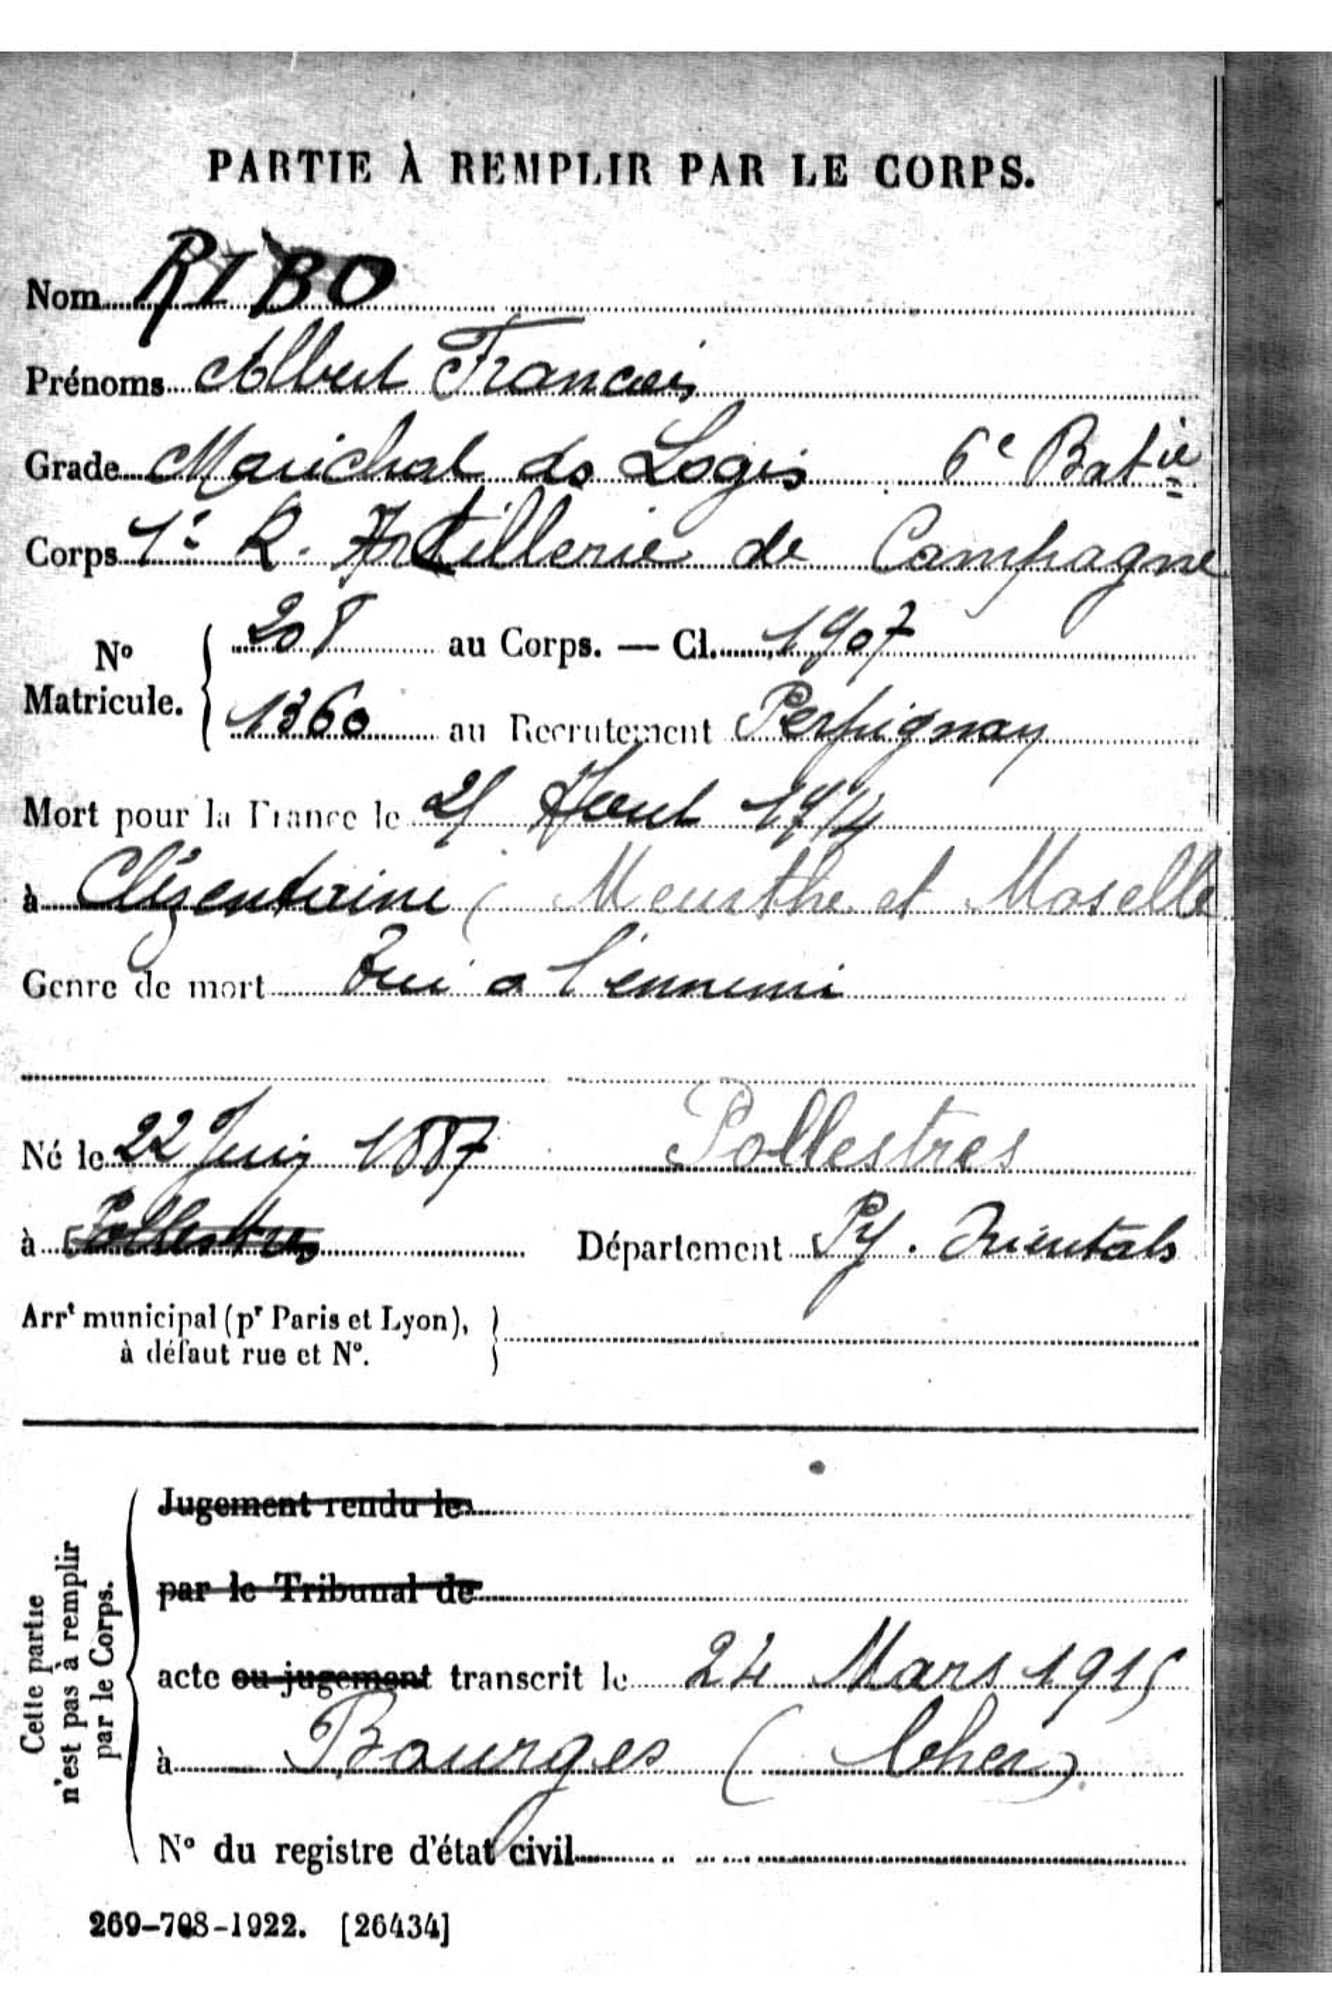 PARTIE À REMPLIR PAR LE CORPS.
Nom RIBO
Prénoms Albert Francois
Grade Marichal ds Logis 6e Batie
Corps 1e R. Artillerie de Campagne
No Matricule. 208 au Corps. — Cl. 1907
1360 au Recrutement Perpignan
Mort pour la France le Aout 1914
à Clézentaine ( Meurthe et Moselle
Genre de mort Tué a l'ennemi
Né le 22 Juin 1887 Pollestres
à Pollestres Département Py. Orientals
Arrt municipal (pr Paris et Lyon),
à défaut rue et No.
Cette partie
n'est pas à remplir
par le Corps.
Jugement rendu le
par le Tribunal de
acte ou jugement transcrit le 24 Mars 1915
à Bourges ( Cher)
No du registre d'état civil
269-708-1922. [26434]